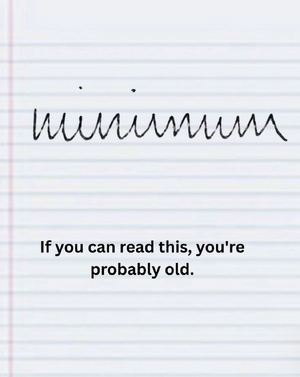 minimum
If you can read this, you're
probably old.